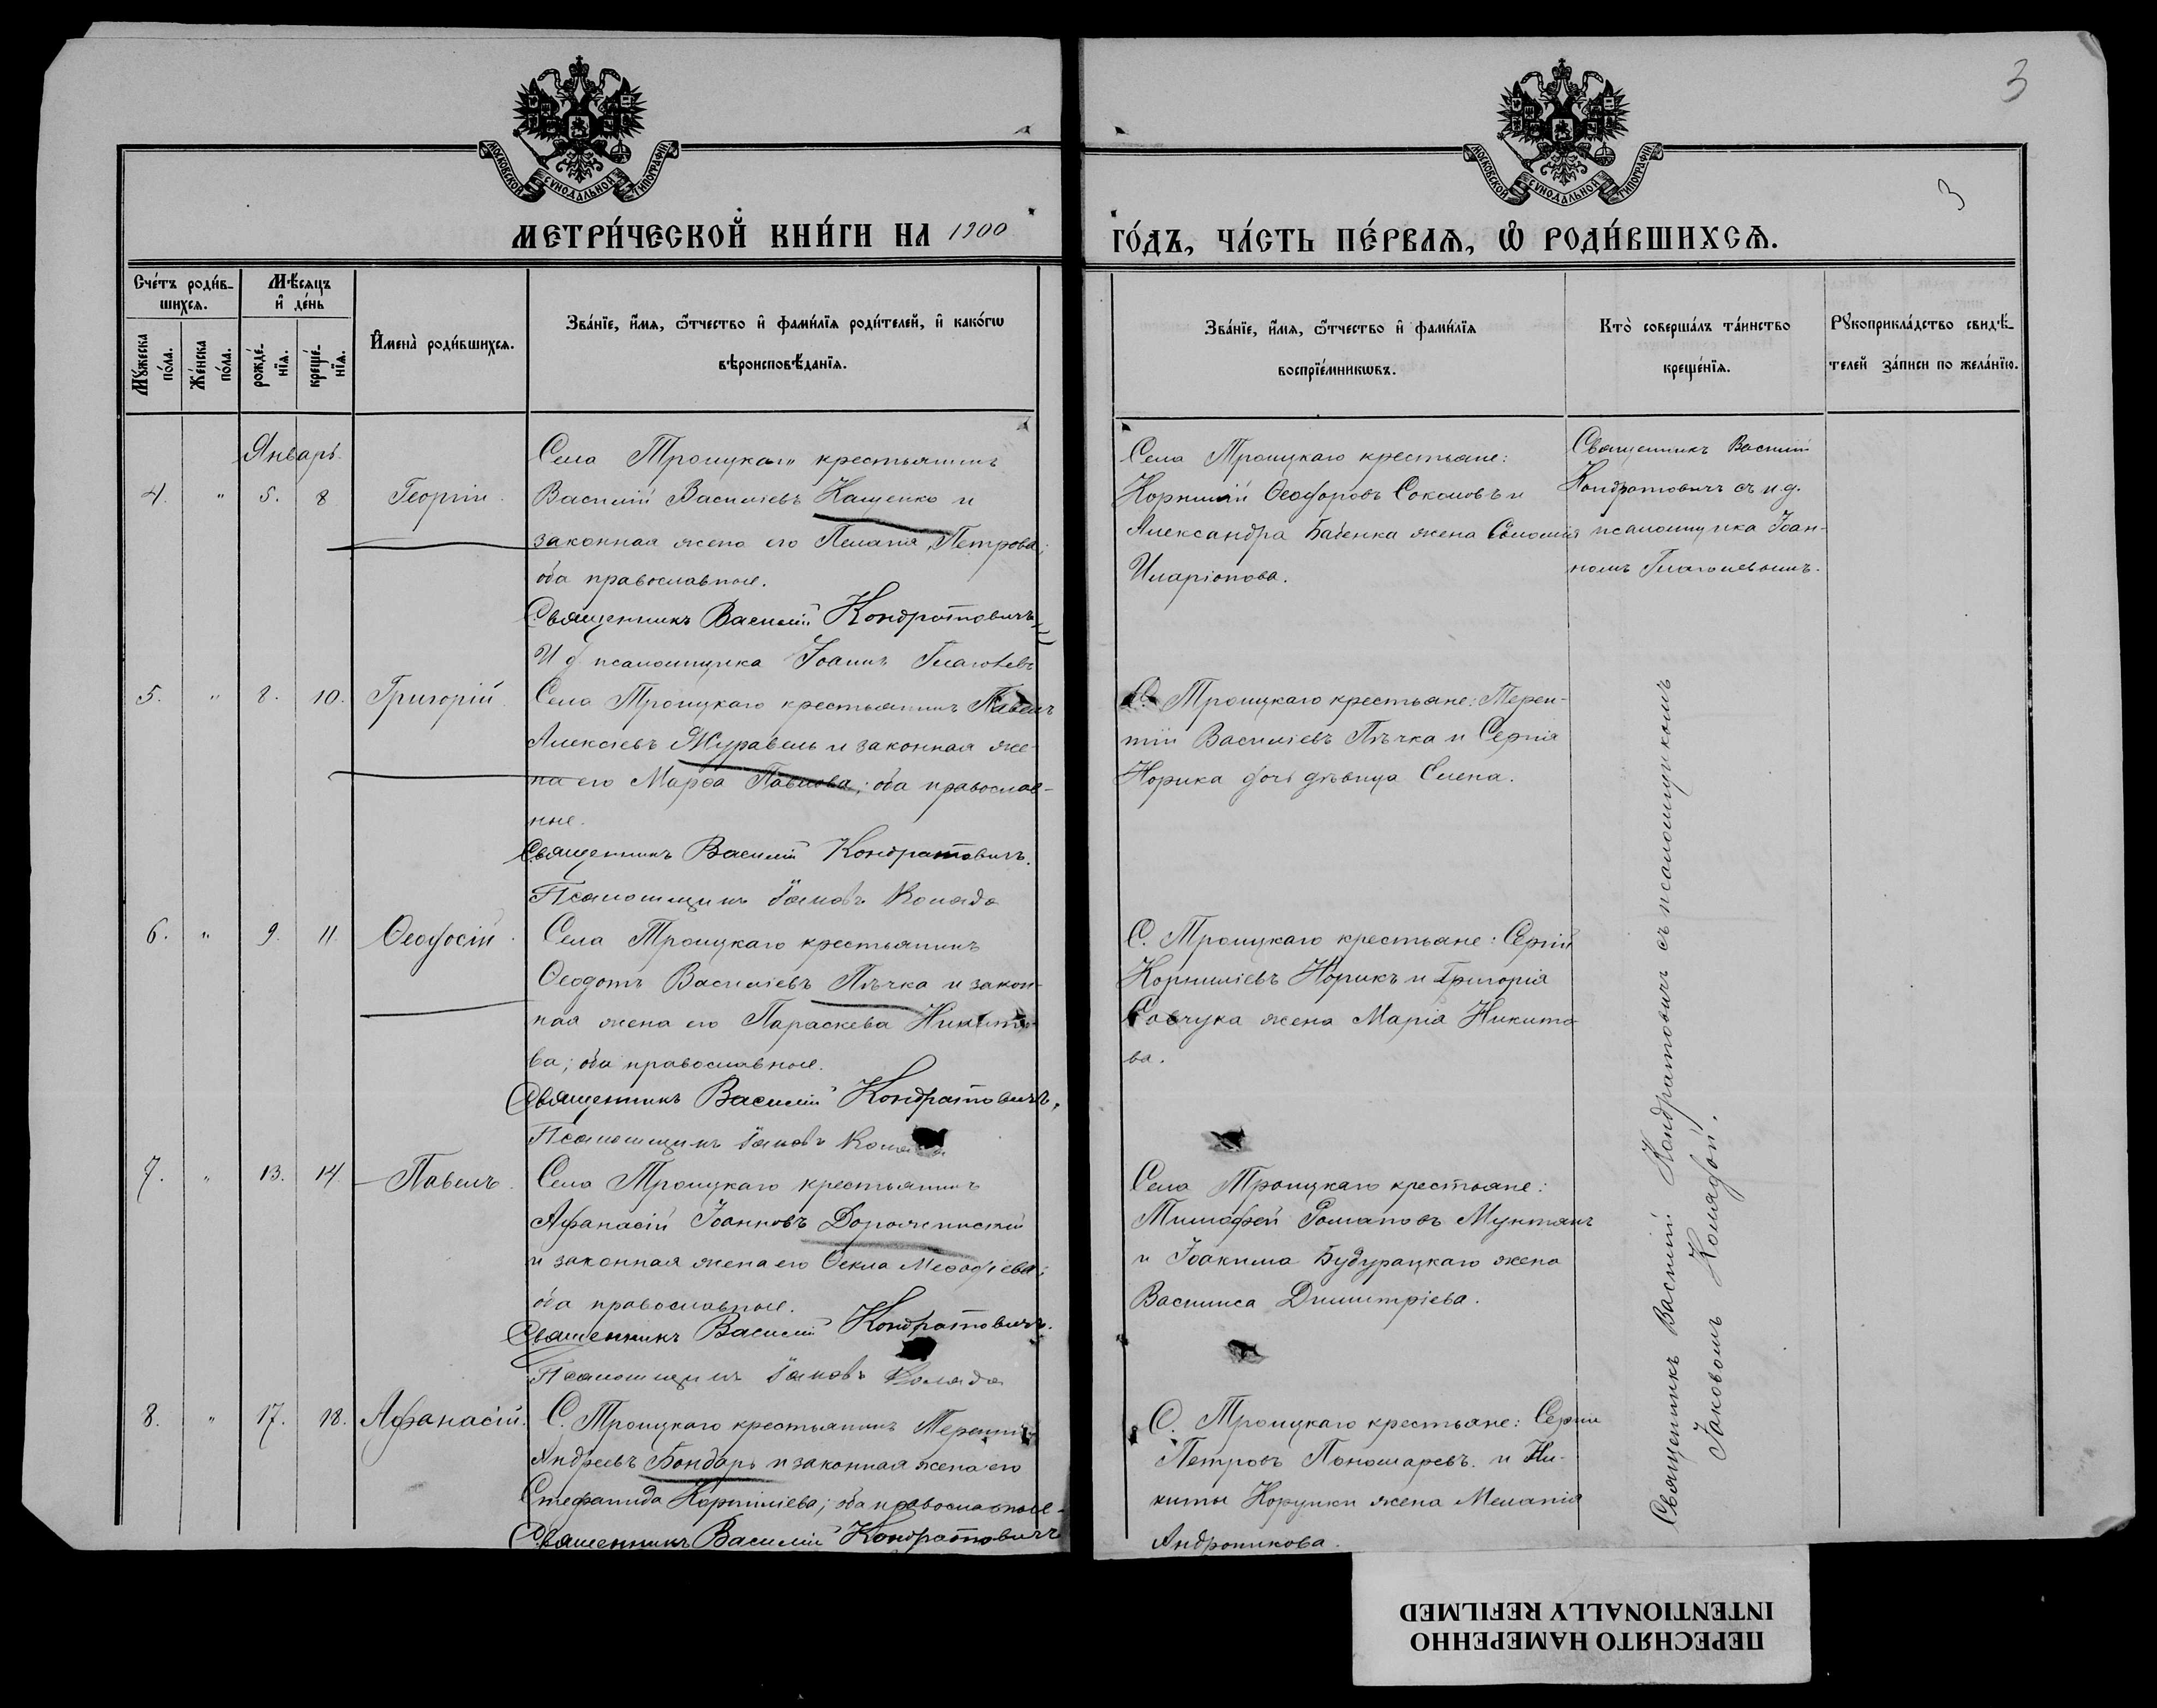 3
МОСКОВСКОЙ СѴНОДАЛЬНОЙ ТИПОГРАФІИ
МОСКОВСКОЙ СѴНОДАЛЬНОЙ ТИПОГРАФІИ
3
МЕТРИ́ЧЕСКОЙ КНИ́ГИ НА 1900
ГО́ДЪ, ЧА́СТЬ ПЕ́РВАѦ, Ѡ҆ РОДИ́ВШИХСѦ.
Сче́тъ роди́в-
шихсѧ.
Мѣ́сѧцъ
и҆ де́нь
Мꙋ́жеска
по́ла.
Же́нска
по́ла.
рожде́-
нїѧ.
креще́-
нїѧ.
И҆мена̀ роди́вшихсѧ.
Зва́нїе, и҆́мѧ, ѻ҆́тчество и҆ фами́лїѧ роди́телей, и҆ како́гѡ
вѣроисповѣ́данїѧ.
Зва́нїе, и҆́мѧ, ѻ҆́тчество и҆ фами́лїѧ
воспрїе́мникѡвъ.
Кто̀ соверша́лъ та́инство
креще́нїѧ.
Рꙋкоприкла́дство свидѣ́-
телей за́писи по жела́нїю.
Январь.
4. " 5. 8 Георгій.
Села Троицкаго крестьянинъ
Василій Василіевъ Кащенко и
законная жена его Пелагія Петрова;
оба православные.
Священникъ Василій Кондратовичъ
И д псаломщика Іоаннъ Глаголевъ
Села Троицкаго крестьяне:
Корнилій Ѳеодоровъ Соколовъ и
Александра Бабенка жена Соломія
Иларіонова.
Священникъ Василій
Кондратовичъ съ и.д.
псаломщика Іоан-
номъ Глаголевымъ.
5. " 8. 10. Григорій.
Села Троицкаго крестьянинъ Павелъ
Алексіевъ Журавель и законная же-
на его Марѳа Павлова; оба православ-
ные.
Священникъ Василій Кондратовичъ.
Псаломщикъ Іаковъ Коляда
С. Троицкаго крестьяне: Терен-
тій Василіевъ Пѣчка и Сергія
Норика дочь дѣвица Елена.
6. " 9. 11. Ѳеодосій.
Села Троицкаго крестьянинъ
Ѳеодотъ Василіевъ Пѣчка и закон-
ная жена его Параскева Никито-
ва; оба православные.
Священникъ Василій Кондратовичъ.
Псаломщикъ Іаковъ Коляда
С. Троицкаго крестьяне: Сергій
Корниліевъ Норикъ и Григорія
Савчука жена Марія Никито-
ва.
7. " 13. 14. Павелъ.
Села Троицкаго крестьянинъ
Афанасій Іоанновъ Дорожинскій
и законная жена его Ѳекла Меѳодіева;
оба православные.
Священникъ Василій Кондратовичъ.
Псаломщикъ Іаковъ Коляда
Села Троицкаго крестьяне:
Тимофей Романовъ Мунтянъ
и Іоакима Будурацкаго жена
Василиса Димитріева.
8. " 17. 18. Афанасій.
С. Троицкаго крестьянинъ Терентій
Андреевъ Бондарь и законная жена его
Стефанида Корниліева; оба православные.
Священникъ Василій Кондратовичъ
С. Троицкаго крестьяне: Сергій
Петровъ Пономаревъ и Ни-
киты Корунки жена Меланія
Андроникова.
Священникъ Василій Кондратовичъ съ псаломщикомъ
Іаковомъ Колядой.
ПЕРЕСНЯТО НАМЕРЕННО
INTENTIONALLY REFILMED